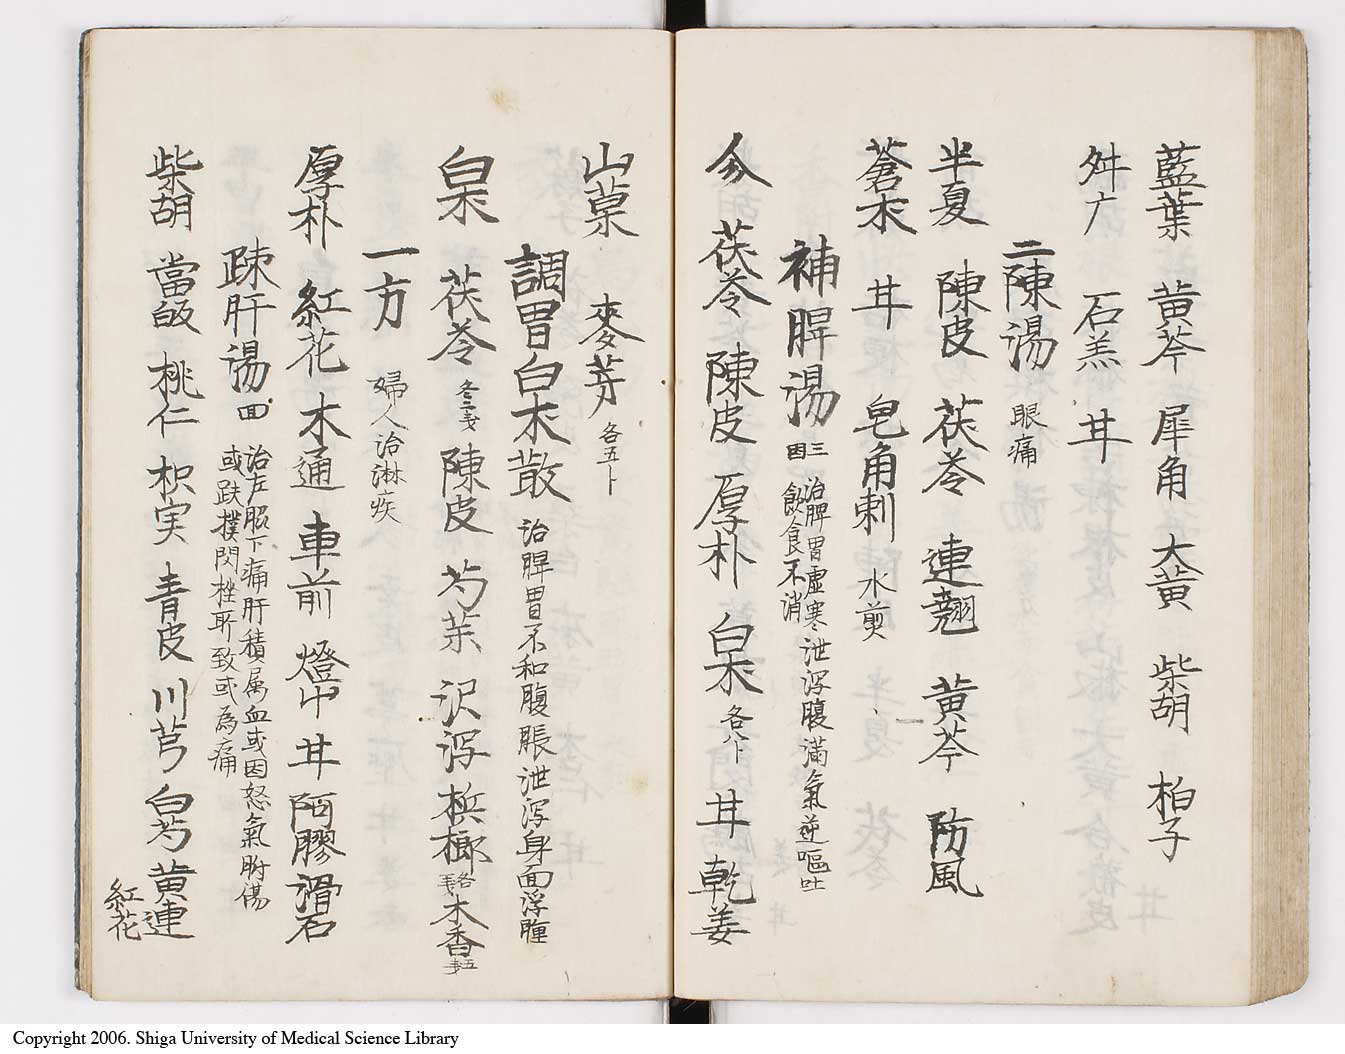 藍葉 黄芩 犀角 大黄 柴胡 柏子
舛广 石羔 甘
二陳湯 眼痛
半夏 陳皮 茯苓 連翹 黄芩 防風
蒼朮 甘 皂角刺 水煎
補脾湯 三因 治脾胃虚寒泄瀉腹滿氣逆嘔吐
飲食不消
参 茯苓 陳皮 厚朴 白朮 各八卜 甘 乾姜
山菓 麥芽 各五卜
調胃白朮散 治脾胃不和腹脹泄瀉身面浮腫
白朮 茯苓 各二戔 陳皮 芍薬 沢瀉 梹榔 木香
一方 婦人治淋疾
厚朴 紅花 木通 車前 燈中 甘 阿膠 滑石
疎肝湯 治左脇下痛肝積属血或因怒氣所傷
或跌撲閃挫所致或為痛
柴胡 當皈 桃仁 枳実 青皮 川芎 白芍 黄連
紅花
Copyright 2006. Shiga University of Medical Science Library